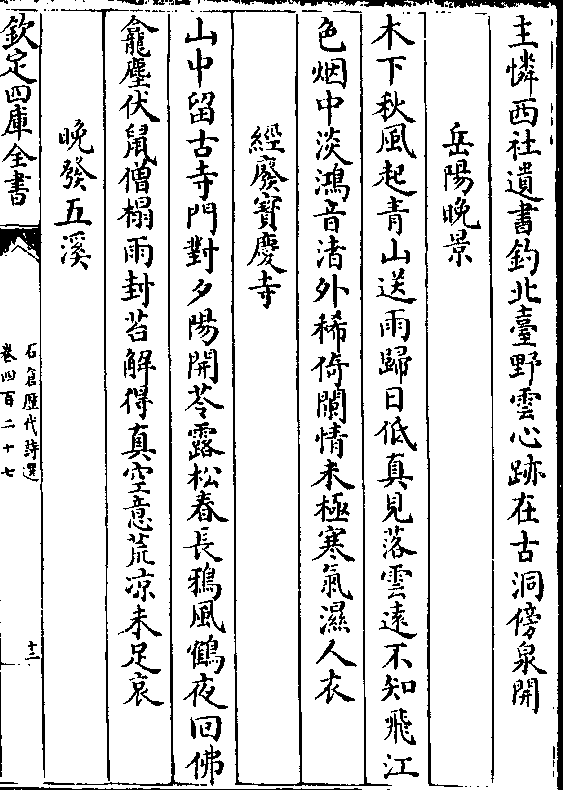 主憐西社遺書釣北臺野雲心跡在古洞傍泉開
岳陽晚景
木下秋風起青山送雨歸日低真見落雲遠不知飛江
色烟中淡鴻音渚外稀倚闌情未極寒氣濕人衣
經廢寳慶寺
山中留古寺門對夕陽開苓露松春長鴉風鶴夜回佛
龕塵伏鼠僧榻雨封苔解得真空意荒凉未足哀
晚發五溪
欽定四庫全書
石倉歴代詩選
卷四百二十七
十三